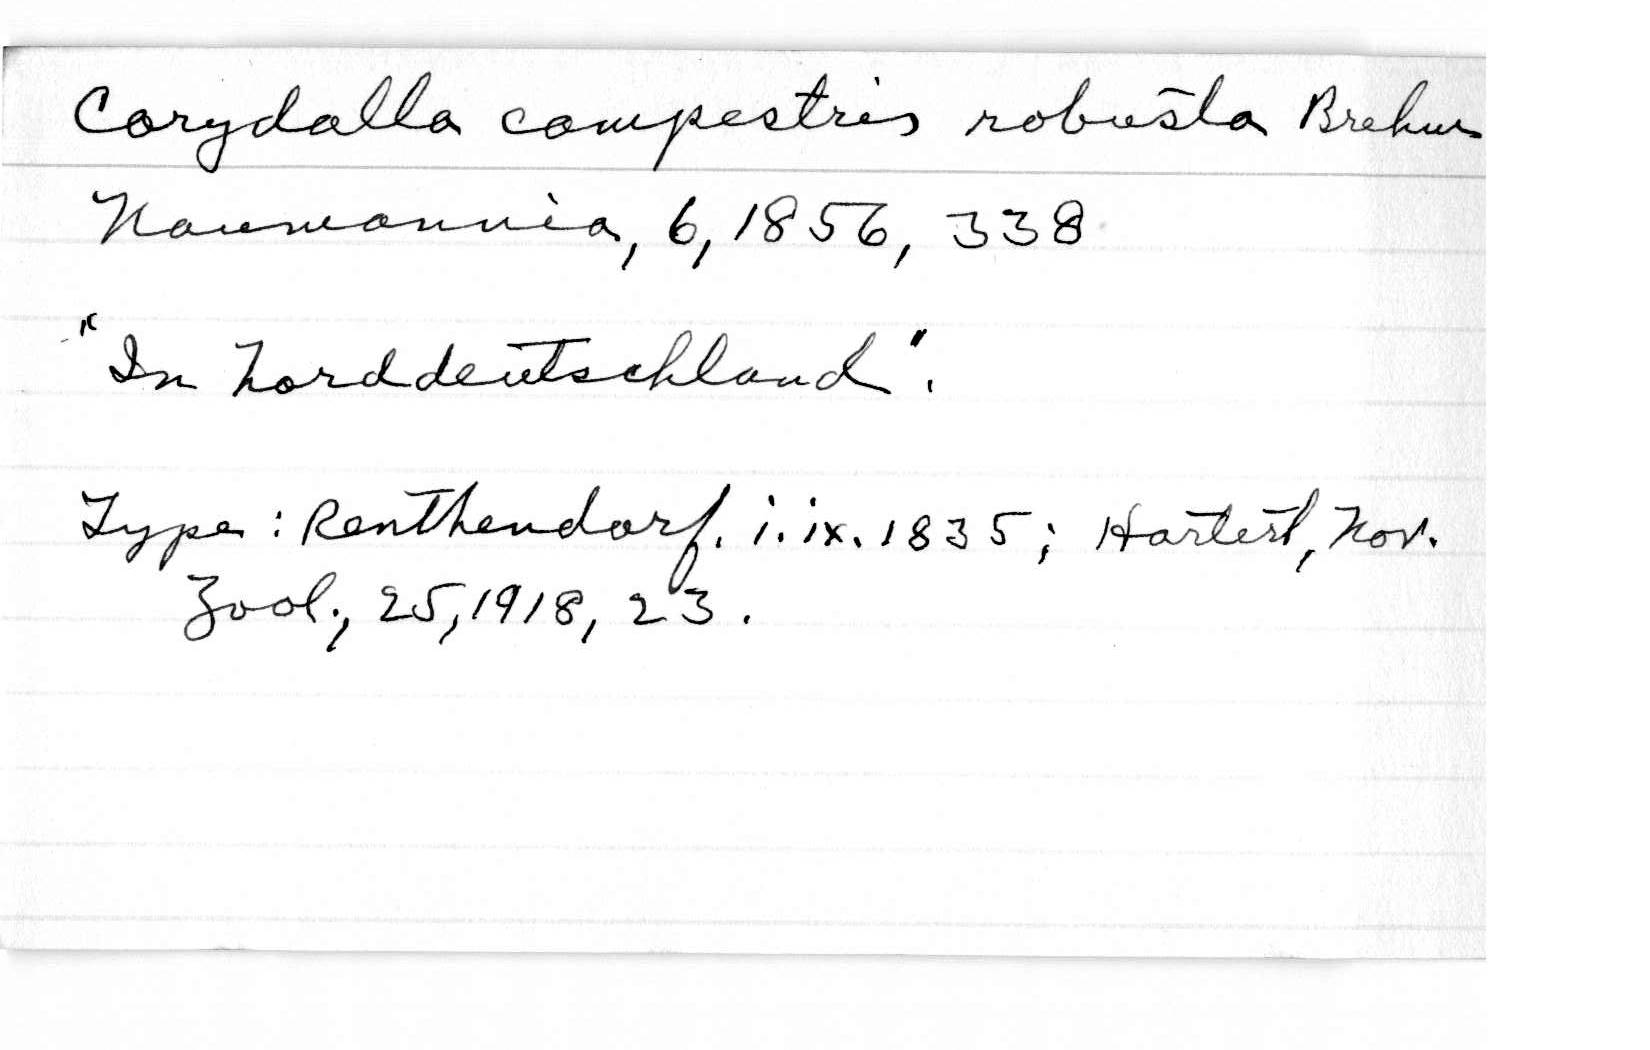 Corydalla campestris robusta Brehm
Naumannia, 6, 1856, 338
"In Norddeutschland".
Type: Renthendorf. i. ix. 1835; Hartert, Nov.
Zool., 25, 1918, 23.